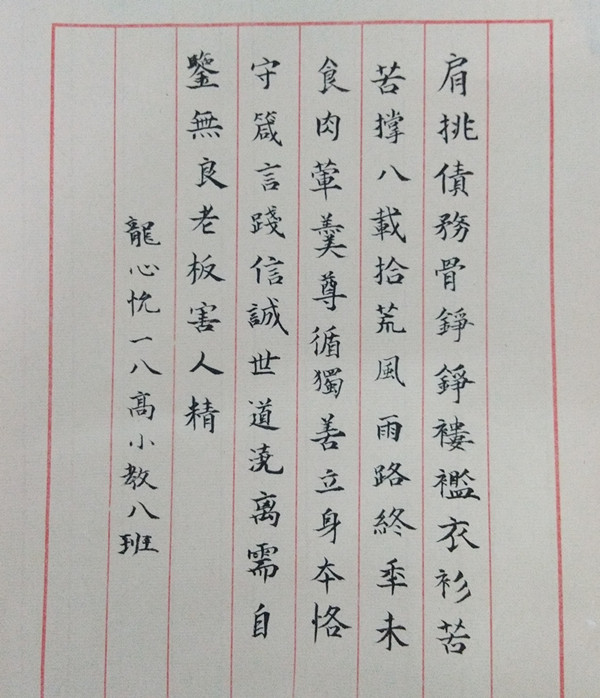 肩挑債務骨錚錚褸襤衣衫苦
苦撐八載拾荒風雨路終年未
食肉葷羹尊循獨善立身本恪
守箴言踐信誠世道澆离需自
鑒無良老板害人精
龍心悅一八高小教八班